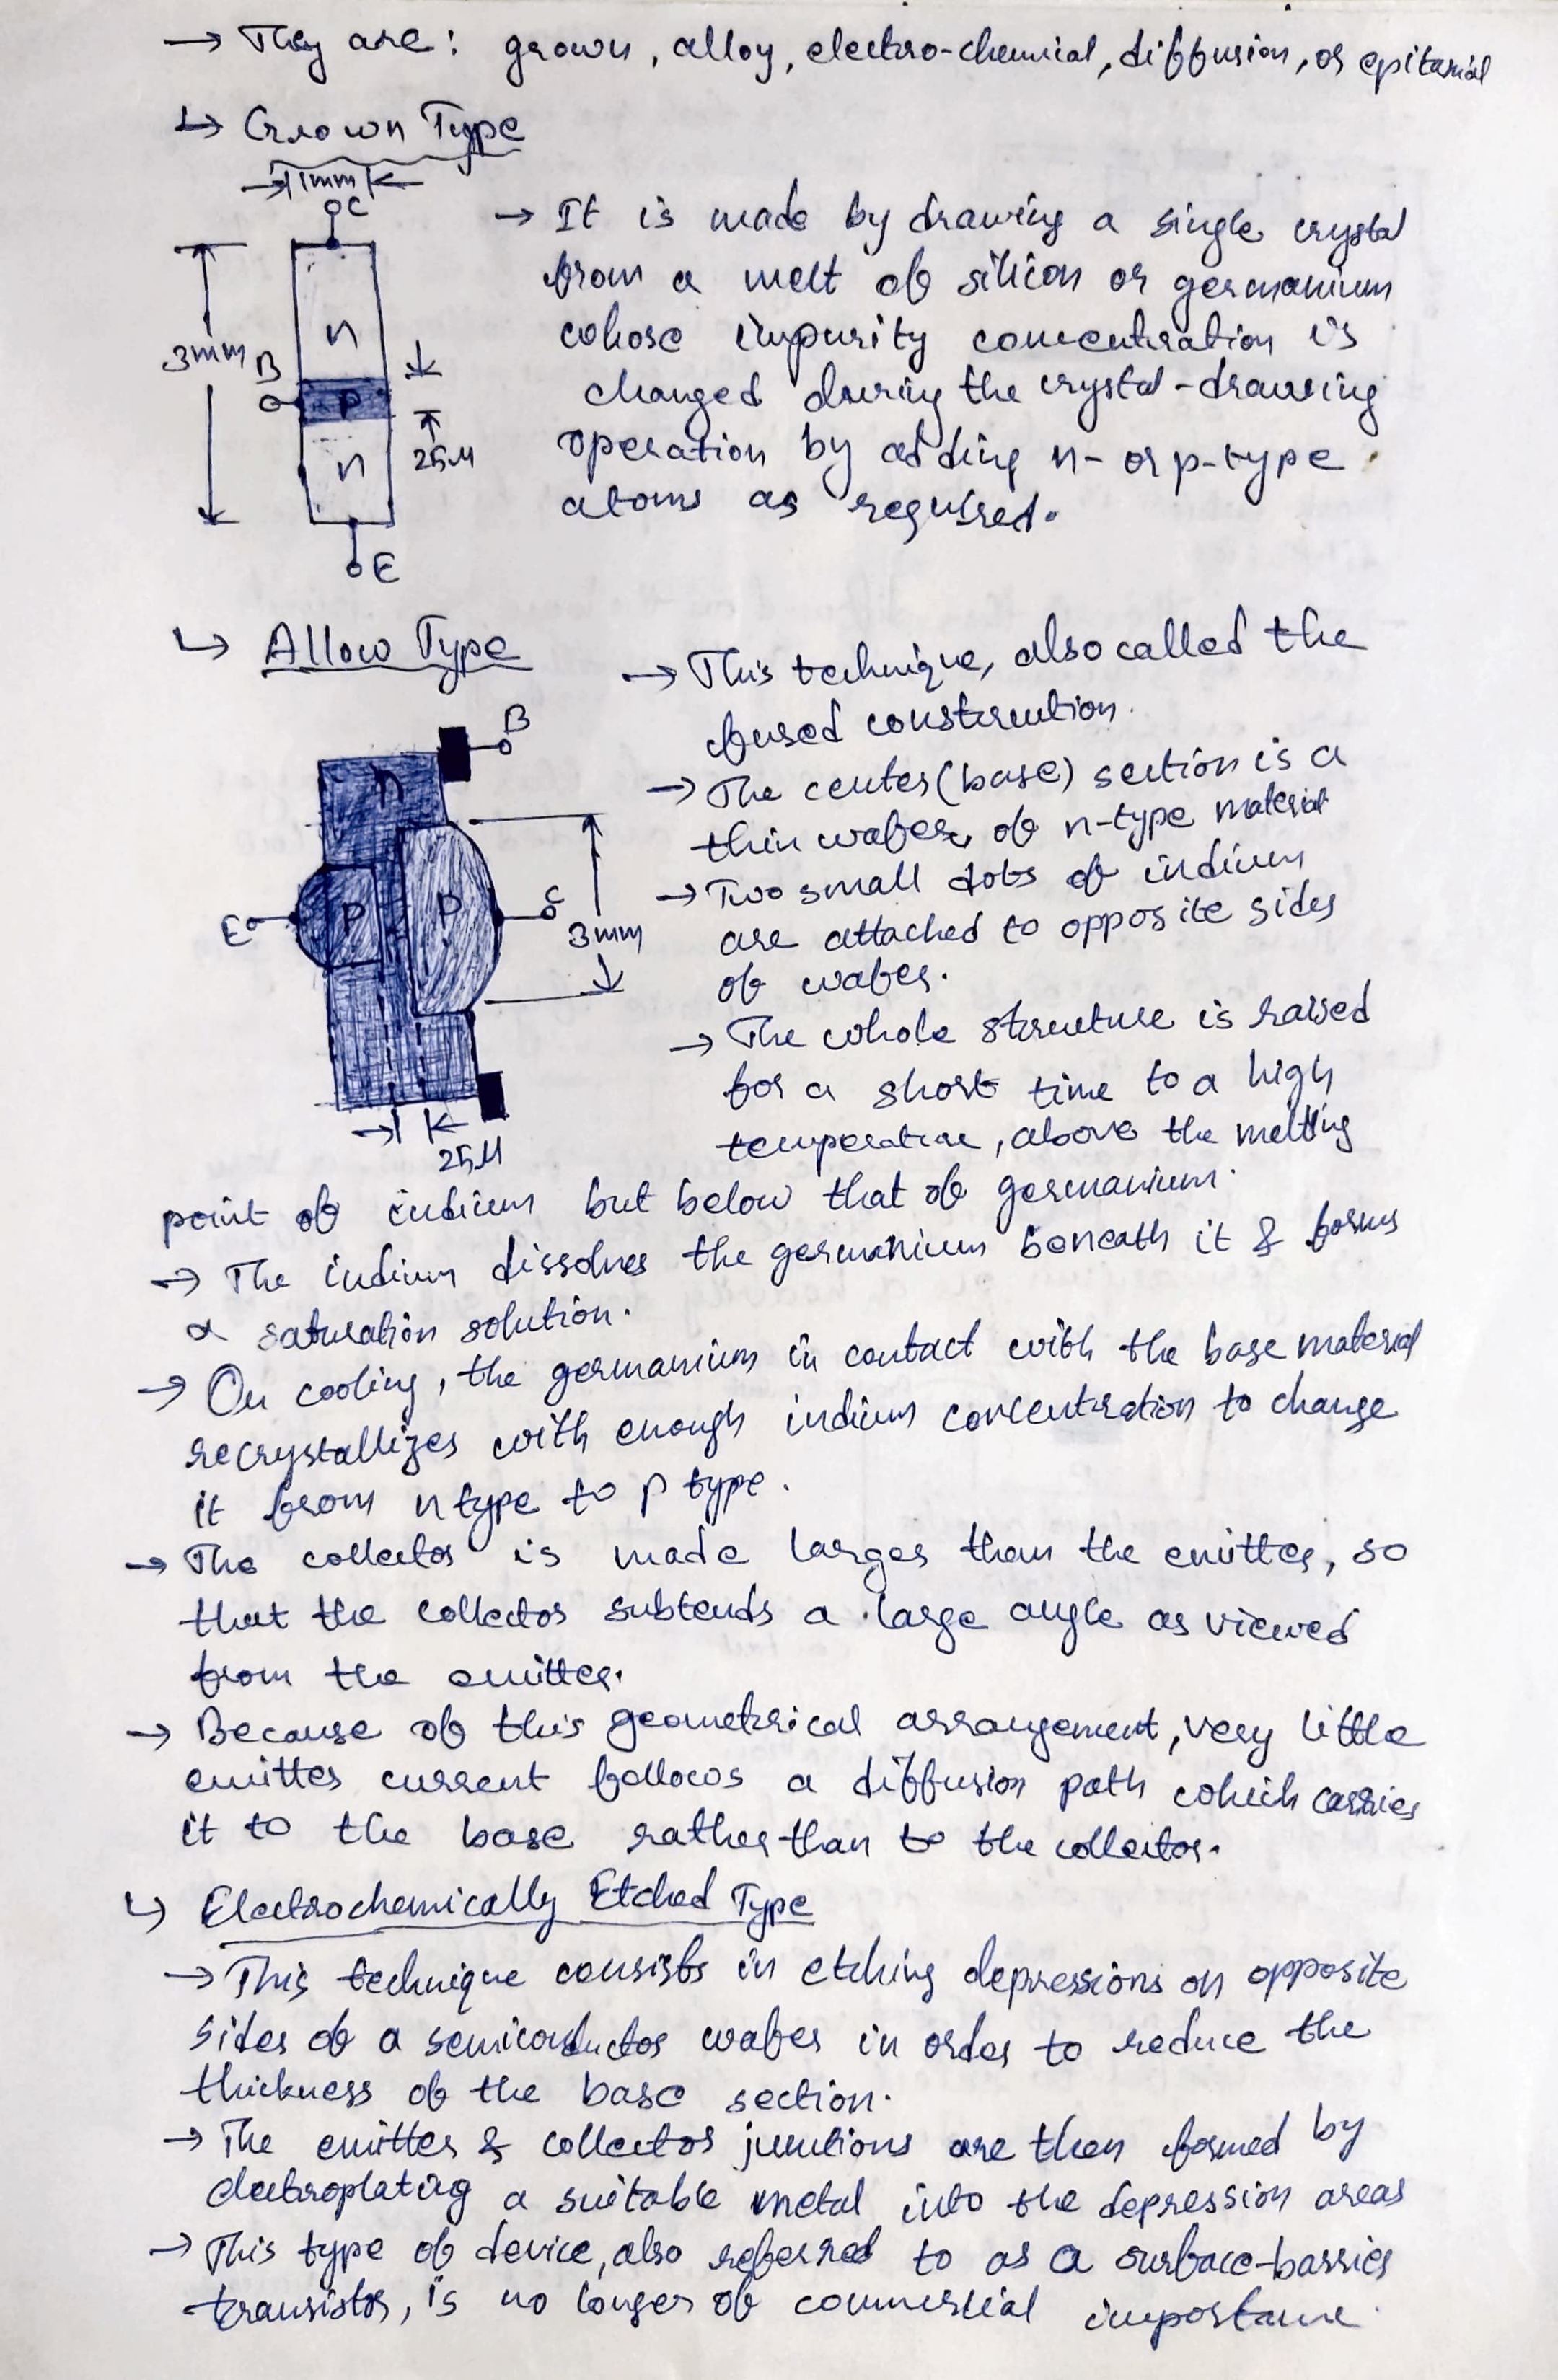 → They are: grown, alloy, electro-chemical, diffusion, or epitaxial
↳ Grown Type
1mm
C
n
3mm
B
P
n
25μ
E
→ It is made by drawing a single crystal
from a melt of silicon or germanium
whose impurity concentration is
changed during the crystal-drawing
operation by adding n- or p-type
atoms as required.
↳ Allow Type
B
n
E
P
P
C
3mm
25μ
→ This technique, also called the
fused construction.
→ The center (base) section is a
thin wafer of n-type material
→ Two small dots of indium
are attached to opposite sides
of wafer.
→ The whole structure is raised
for a short time to a high
temperature, above the melting
point of indium but below that of germanium.
→ The indium dissolves the germanium beneath it & forms
a saturation solution.
→ On cooling, the germanium in contact with the base material
recrystallizes with enough indium concentration to change
it from n type to P type.
→ The collector is made larger than the emitter, so
that the collector subtends a large angle as viewed
from the emitter.
→ Because of this geometrical arrangement, very little
emitter current follows a diffusion path which carries
it to the base rather than to the collector.
↳ Electrochemically Etched Type
→ This technique consists in etching depressions on opposite
sides of a semiconductor wafer in order to reduce the
thickness of the base section.
→ The emitter & collector junctions are then formed by
electroplating a suitable metal into the depression areas
→ This type of device, also referred to as a surface-barrier
transistor, is no longer of commercial importance.